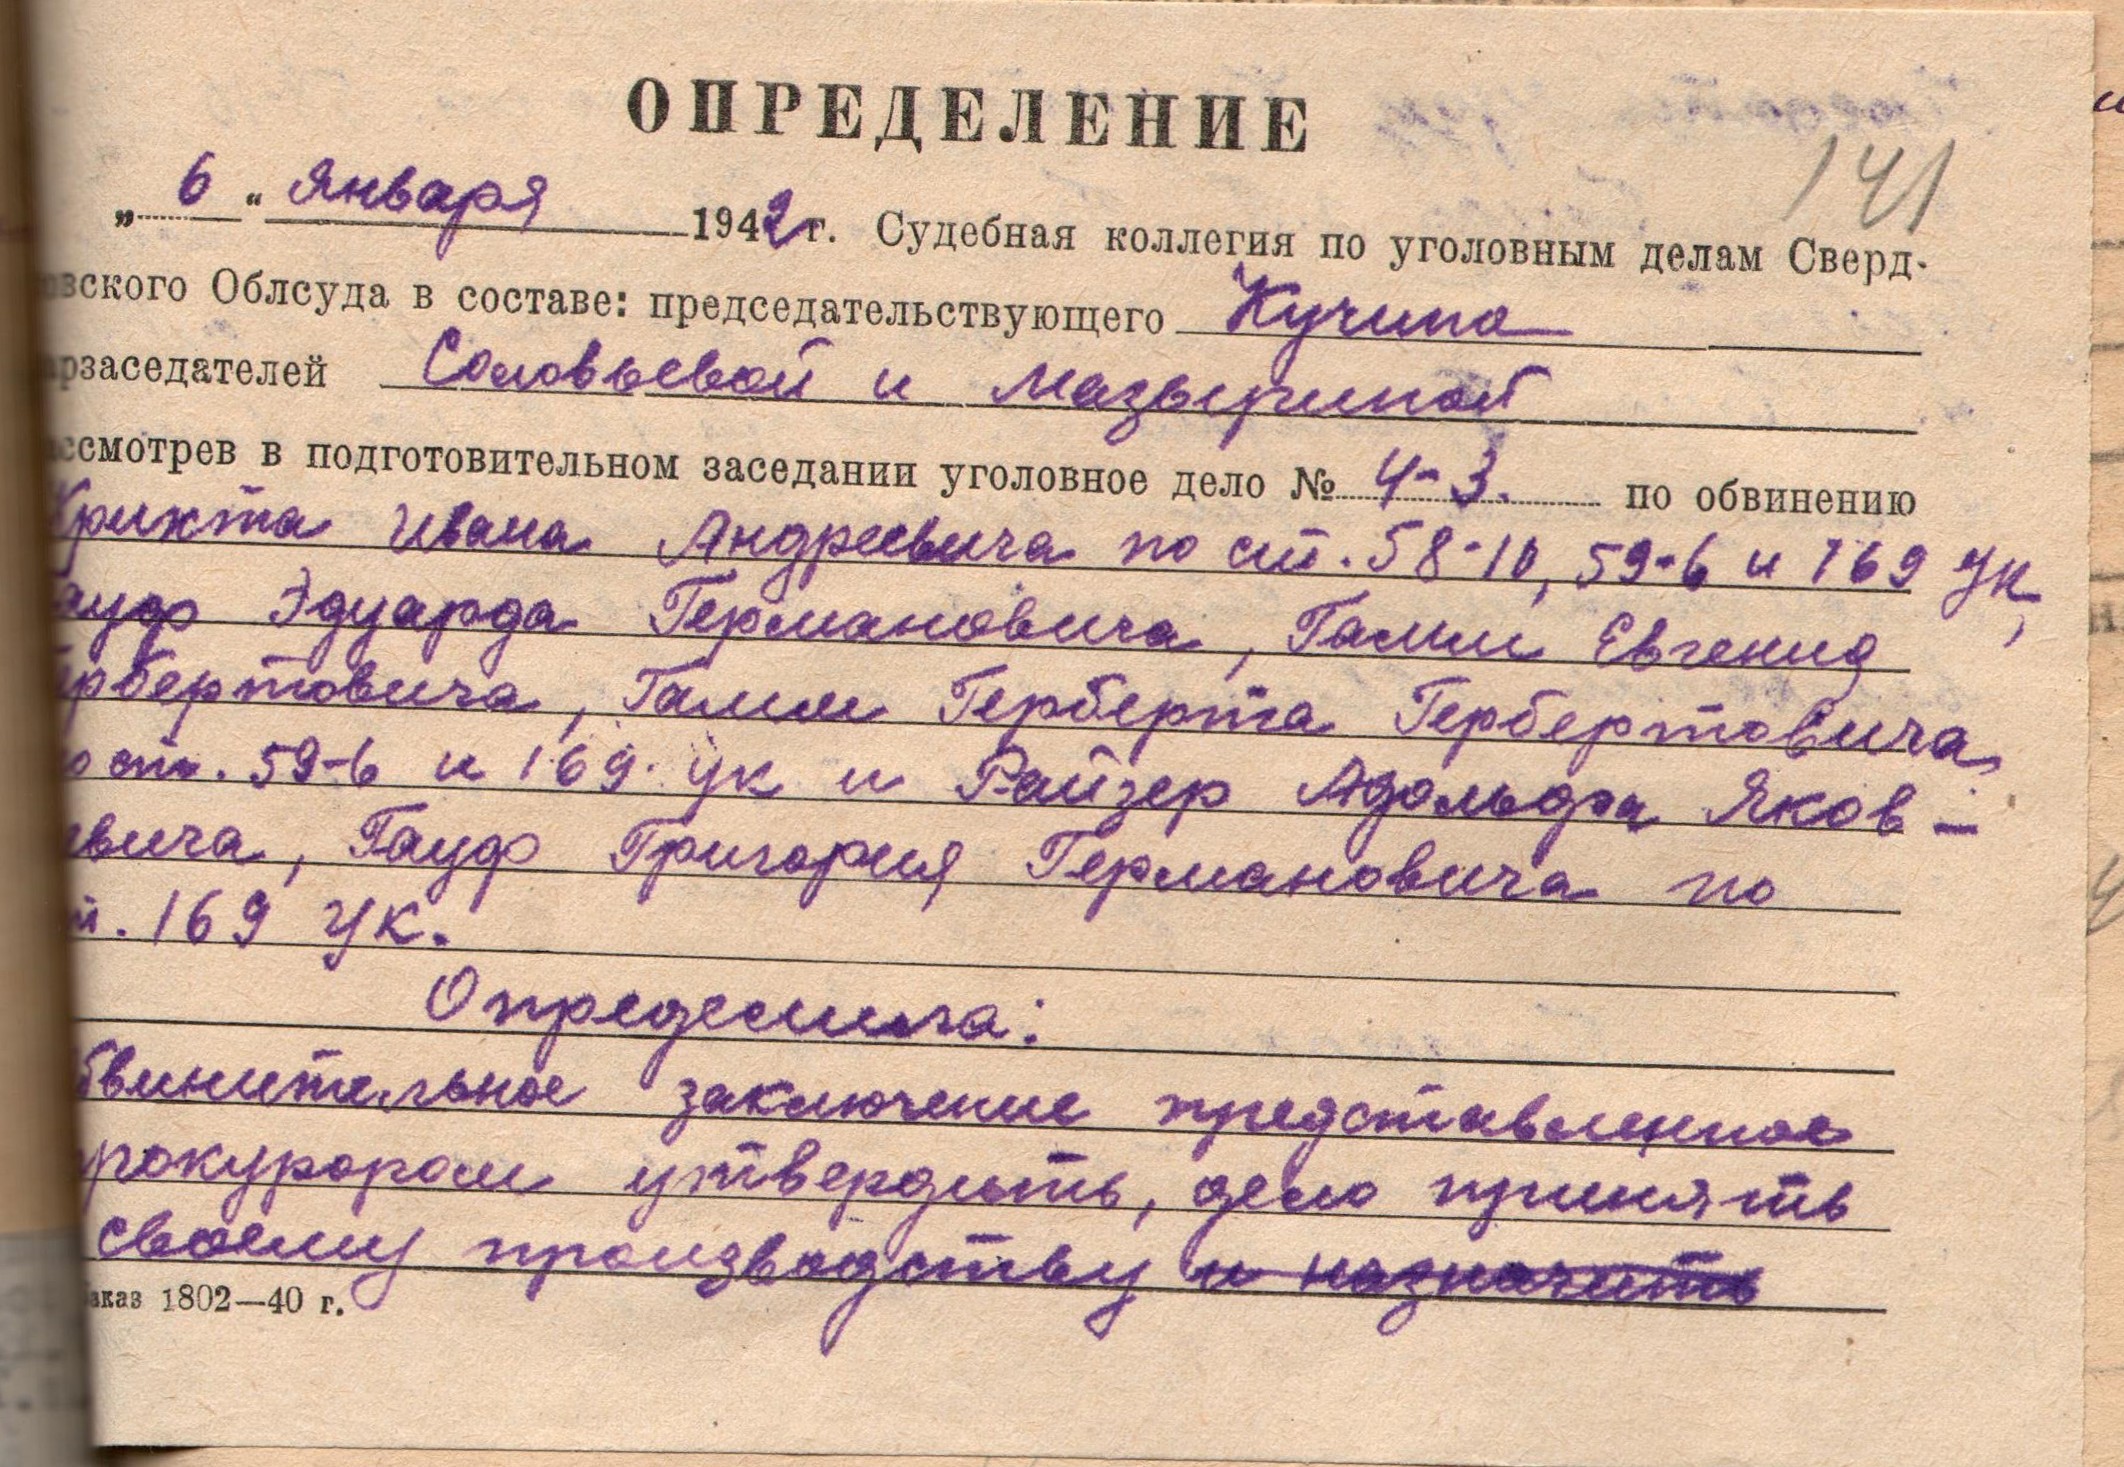 ОПРЕДЕЛЕНИЕ
141
„ 6 “ Января 1942 г. Судебная коллегия по уголовным делам Сверд-
овского Облсуда в составе: председательствующего Кучина
арзаседателей Соловьевой и Мазыриной
ассмотрев в подготовительном заседании уголовное дело № 4-3. по обвинению
Крикта Ивана Андреевича по ст. 58-10, 59-6 и 169 УК,
ауф Эдуарда Германовича, Гамм Евгения
ербертовича, Гамм Герберта Гербертовича,
по ст. 59-6 и 169 УК и Райзер Адольфа Яков-
евича, Гауф Григория Германовича по
ст. 169 УК.
Определила:
бвинительное заключение представленное
прокурором утвердить, дело принять
своему производству и назначить
Заказ 1802—40 г.